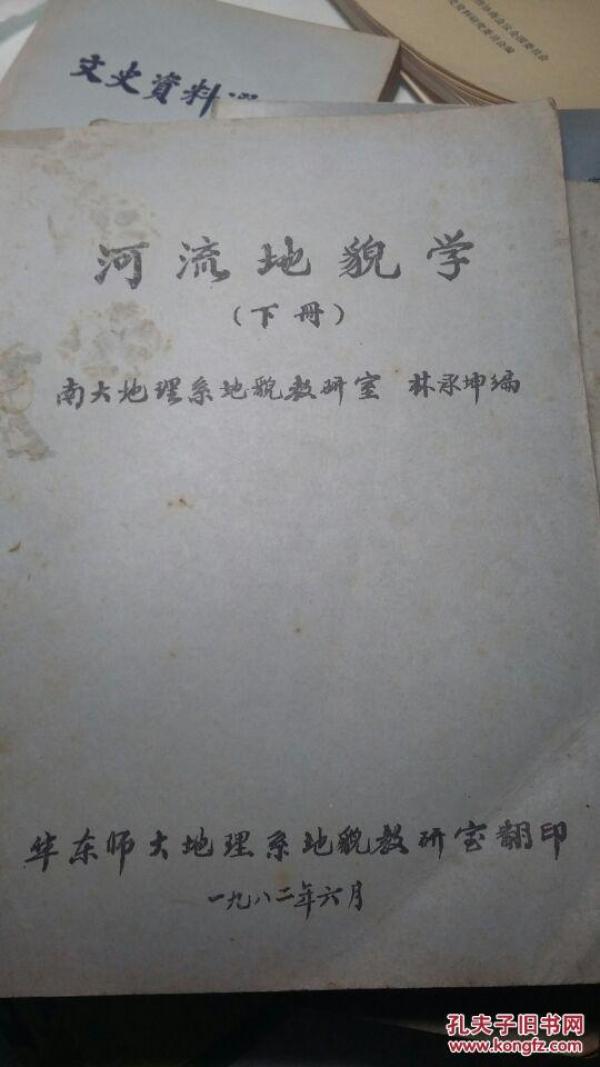 文史資料
河流地貌学
（下册）
南大地理系地貌教研室 林承坤编
华东师大地理系地貌教研室翻印
一九八二年六月
孔夫子旧书网
www.kongfz.com